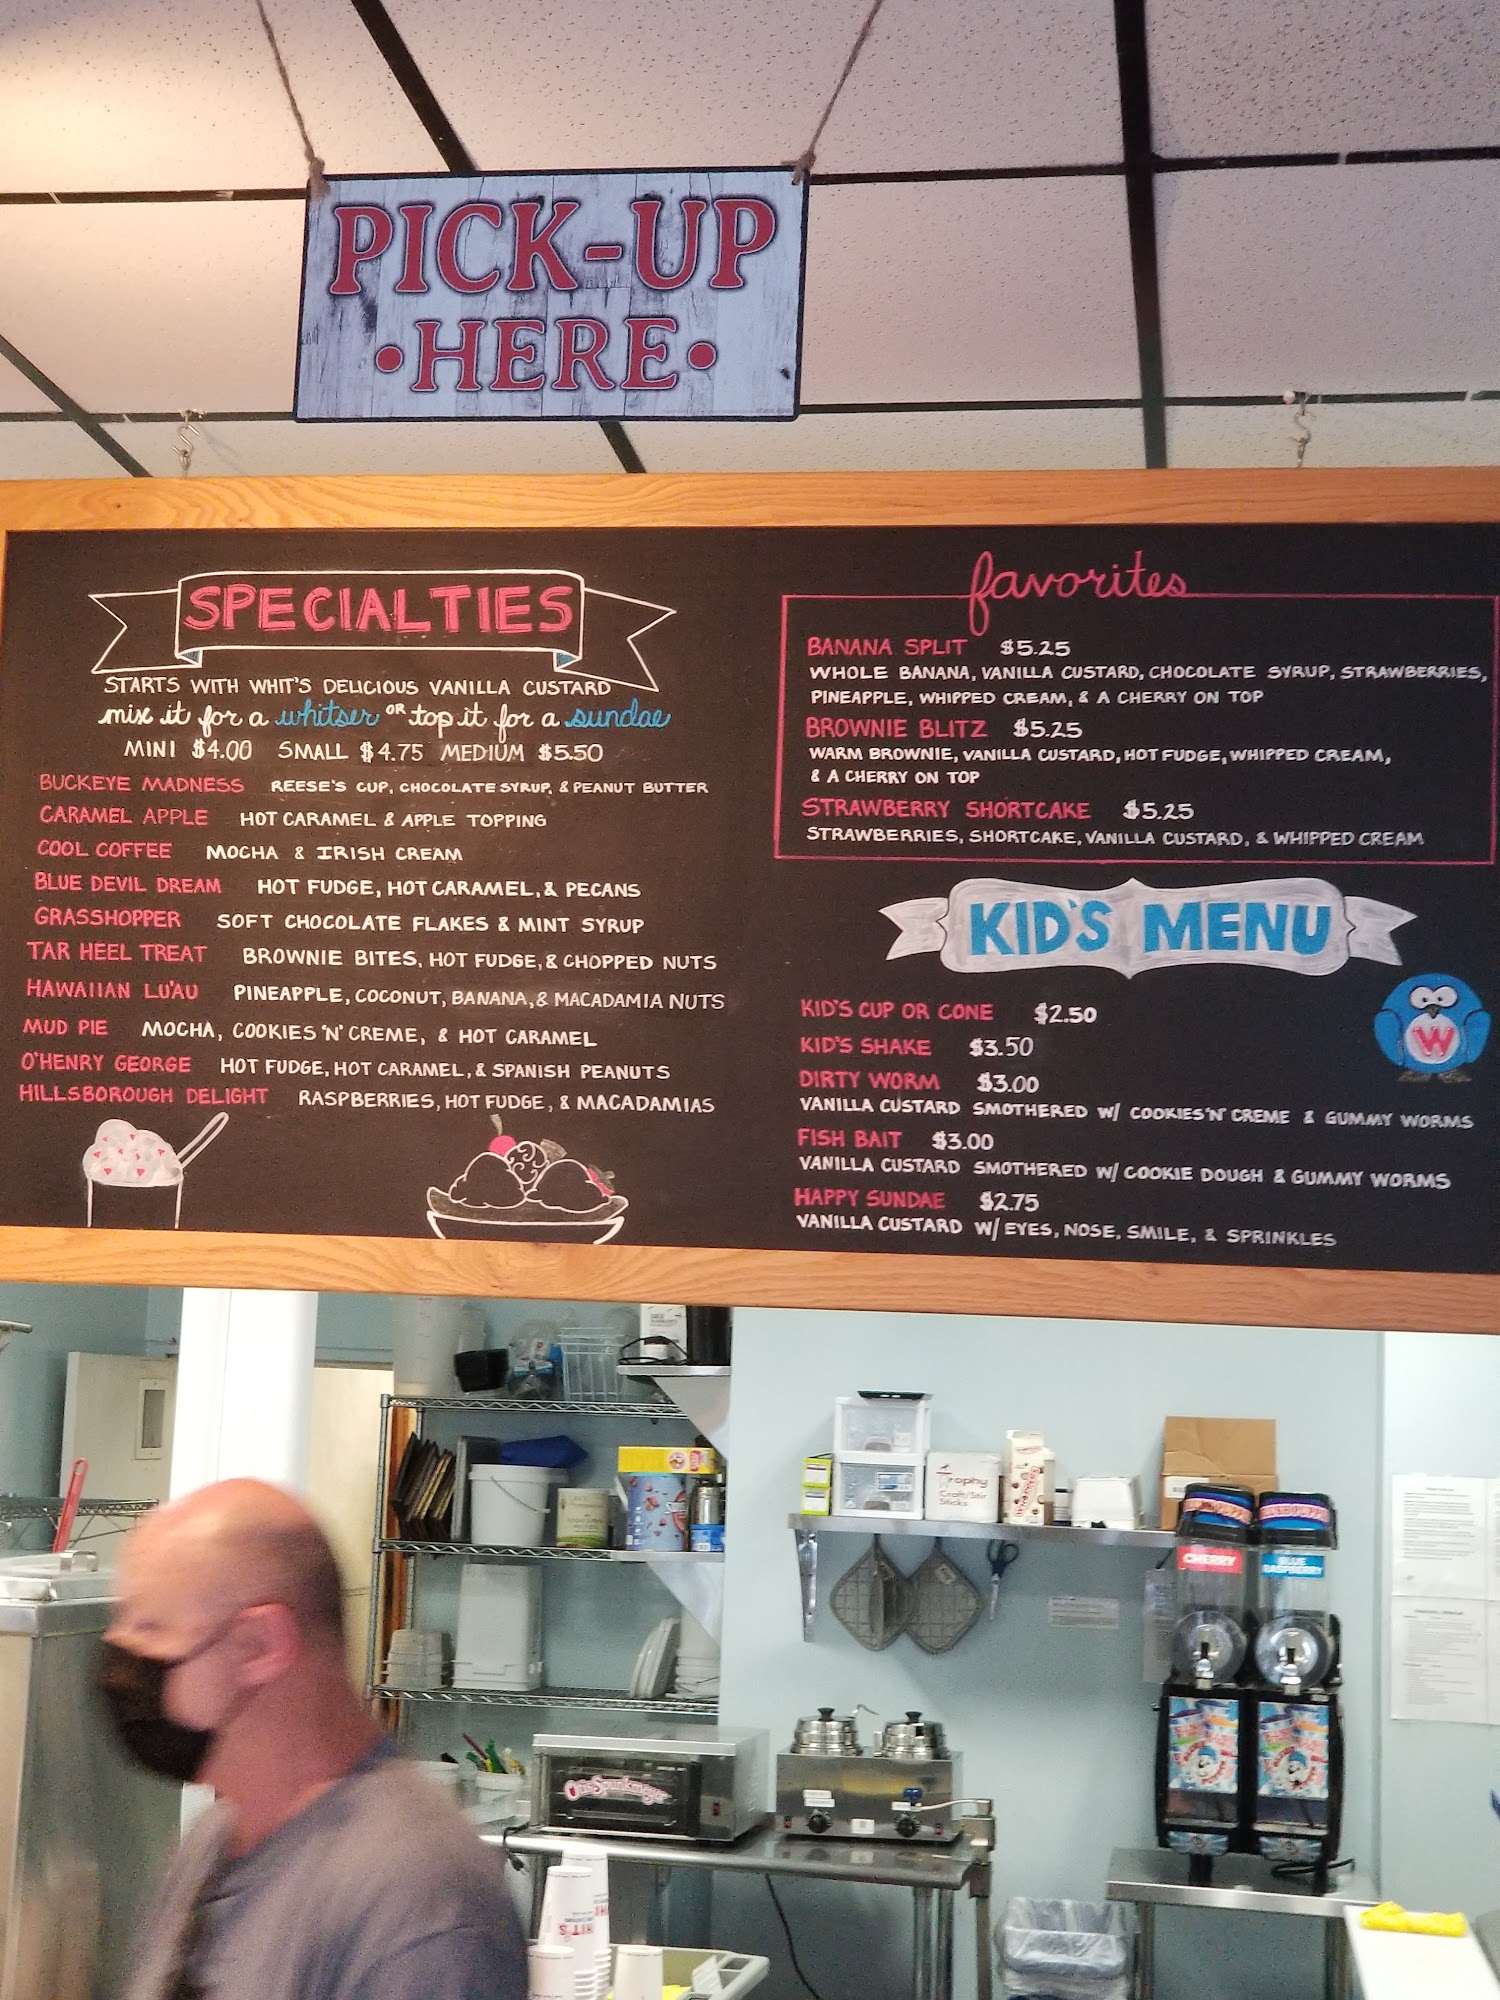 PICK-UP
•HERE•
SPECIALTIES
STARTS WITH WHIT'S DELICIOUS VANILLA CUSTARD
mix it for a whitser OR top it for a sundae
MINI $4.00 SMALL $4.75 MEDIUM $5.50
BUCKEYE MADNESS REESE'S CUP, CHOCOLATE SYRUP, & PEANUT BUTTER
CARAMEL APPLE HOT CARAMEL & APPLE TOPPING
COOL COFFEE MOCHA & IRISH CREAM
BLUE DEVIL DREAM HOT FUDGE, HOT CARAMEL, & PECANS
GRASSHOPPER SOFT CHOCOLATE FLAKES & MINT SYRUP
TAR HEEL TREAT BROWNIE BITES, HOT FUDGE, & CHOPPED NUTS
HAWAIIAN LU'AU PINEAPPLE, COCONUT, BANANA, & MACADAMIA NUTS
MUD PIE MOCHA, COOKIES 'N' CREME, & HOT CARAMEL
O'HENRY GEORGE HOT FUDGE, HOT CARAMEL, & SPANISH PEANUTS
HILLSBOROUGH DELIGHT RASPBERRIES, HOT FUDGE, & MACADAMIAS
favorites
BANANA SPLIT $5.25
WHOLE BANANA, VANILLA CUSTARD, CHOCOLATE SYRUP, STRAWBERRIES,
PINEAPPLE, WHIPPED CREAM, & A CHERRY ON TOP
BROWNIE BLITZ $5.25
WARM BROWNIE, VANILLA CUSTARD, HOT FUDGE, WHIPPED CREAM,
& A CHERRY ON TOP
STRAWBERRY SHORTCAKE $5.25
STRAWBERRIES, SHORTCAKE, VANILLA CUSTARD, & WHIPPED CREAM
KID'S MENU
W
KID'S CUP OR CONE $2.50
KID'S SHAKE $3.50
DIRTY WORM $3.00
VANILLA CUSTARD SMOTHERED W/ COOKIES 'N' CREME & GUMMY WORMS
FISH BAIT $3.00
VANILLA CUSTARD SMOTHERED W/ COOKIE DOUGH & GUMMY WORMS
HAPPY SUNDAE $2.75
VANILLA CUSTARD W/ EYES, NOSE, SMILE, & SPRINKLES
Trophy
Craft/Stir
Sticks
CHERRY
BLUE
RASPBERRY
Otis Spunkmeyer